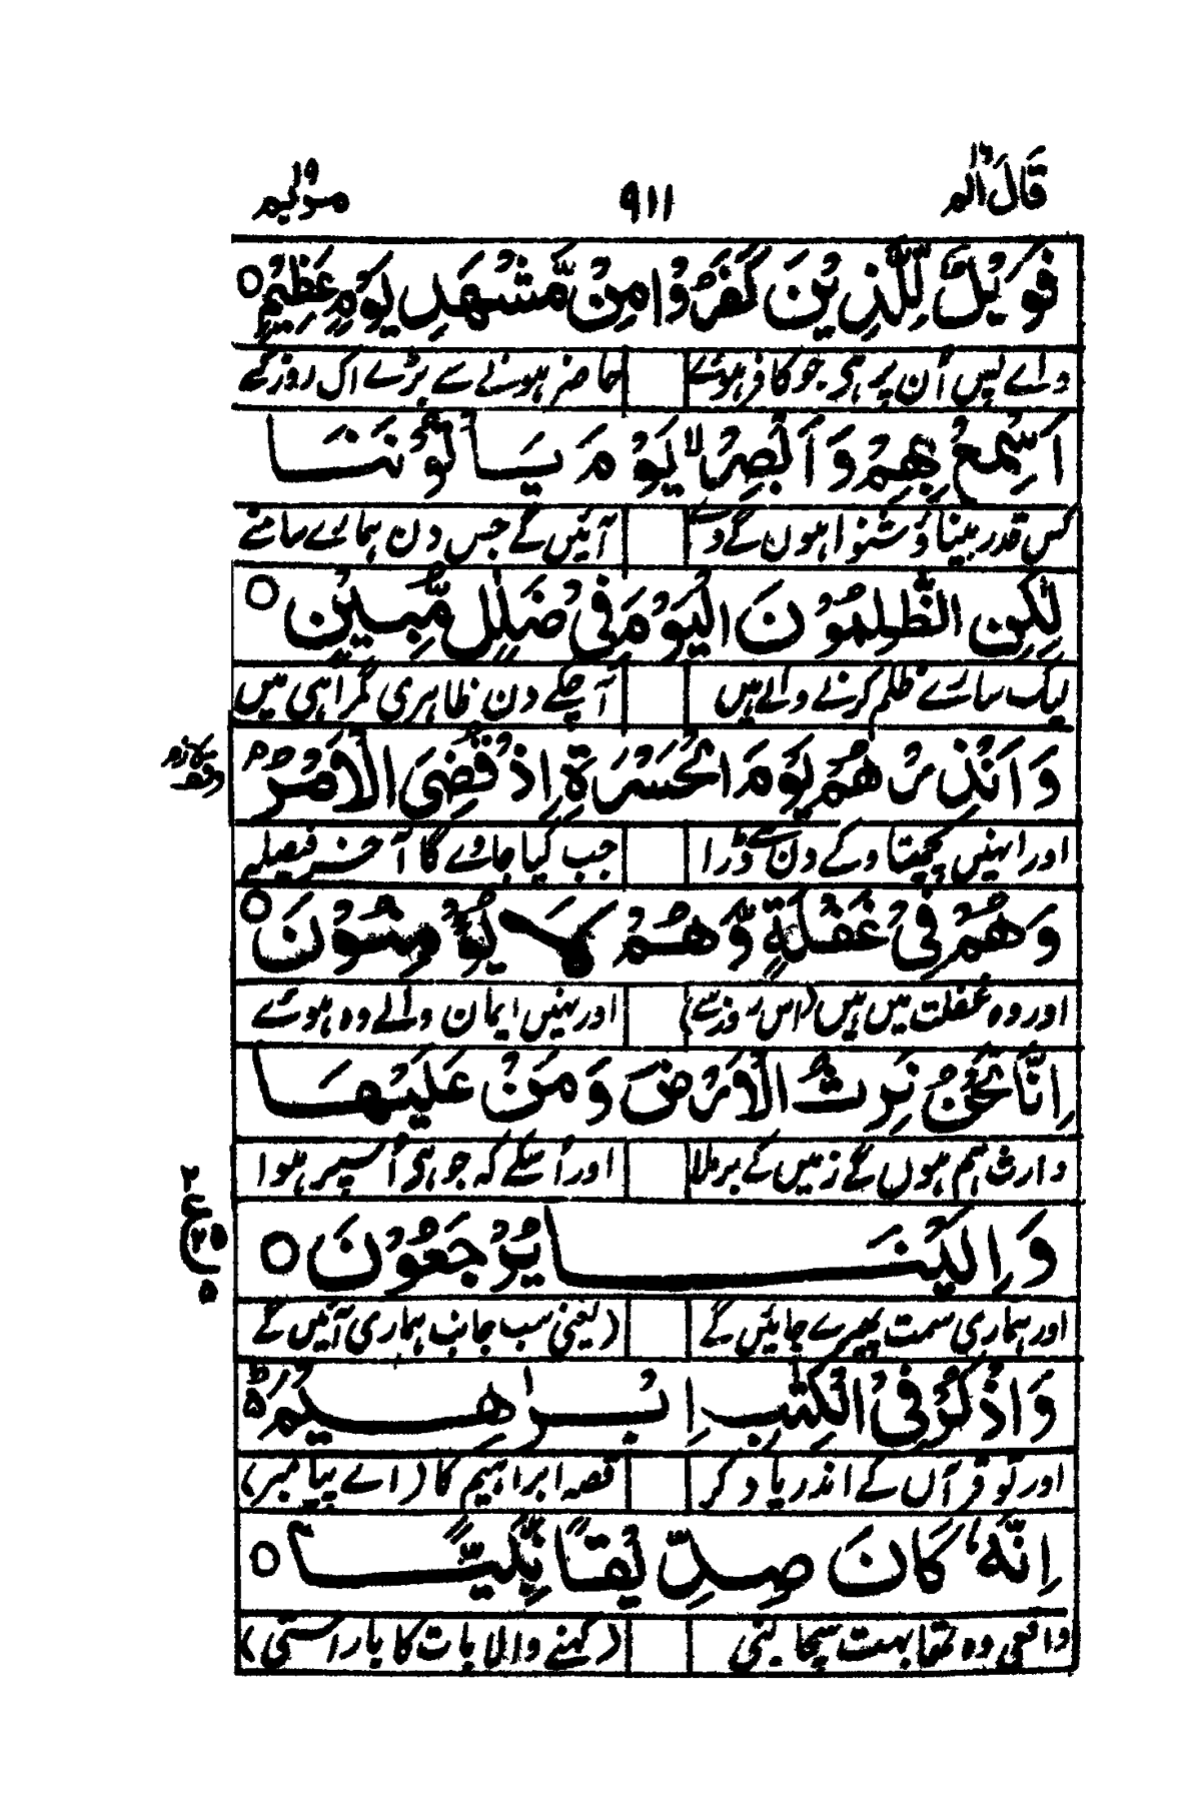 قَالَ اَلَمْ ۱۶
۹۱۱
مریم ۱۹
فَوَيْلٌ لِّلَّذِيْنَ كَفَرُوْا مِنْ مَّشْهَدِ يَوْمٍ عَظِيْمٍ ○
واے پس اُن پر ہی جو کافر ہوئے حاضر ہونے سے بڑے اک روز کے
اَسْمِعْ بِهِمْ وَ اَبْصِرْ ۙ يَوْمَ يَاْتُوْنَنَا
کس قدر بینا و شنوا ہوں گے وے آئیں گے جس دن ہمارے سامنے
لٰكِنِ الظّٰلِمُوْنَ الْيَوْمَ فِيْ ضَلٰلٍ مُّبِيْنٍ ○
لیک سارے ظلم کرنے والے ہیں آ چکے دن ظاہری گمراہی میں
وَ اَنْذِرْهُمْ يَوْمَ الْحَسْرَةِ اِذْ قُضِيَ الْاَمْرُ ۘ
وقف لازم
اور انہیں پچھتاوے کے دن سے ڈرا جب کیا جاوے گا آخر فیصلہ
وَ هُمْ فِيْ غَفْلَةٍ وَّ هُمْ لَا يُؤْمِنُوْنَ ○
اور وہ غفلت میں ہیں (اس روز سے) اور نہیں ایمان والے وہ ہوئے
اِنَّا نَحْنُ نَرِثُ الْاَرْضَ وَ مَنْ عَلَيْهَا
وارث ہم ہوں گے زمیں کے برملا اور اُسکے کہ جو ہی اُسپر ہوا
وَ اِلَيْنَا يُرْجَعُوْنَ ○
۲
ع
۲۵
۵
اور ہماری سمت پھیرے جائیں گے (یعنی سب جانب ہماری آئیں گے
وَ اذْكُرْ فِي الْكِتٰبِ اِبْرٰهِيْمَ ۵ؕ
اور تو قرآں کے اندر یاد کر قصہ ابراہیم کا (اے پیامبر)
اِنَّهٗ كَانَ صِدِّيْقًا نَّبِيًّا ○
واقعی وہ تھا بہت سچا نبی (کہنے والا بات کا با راستی)